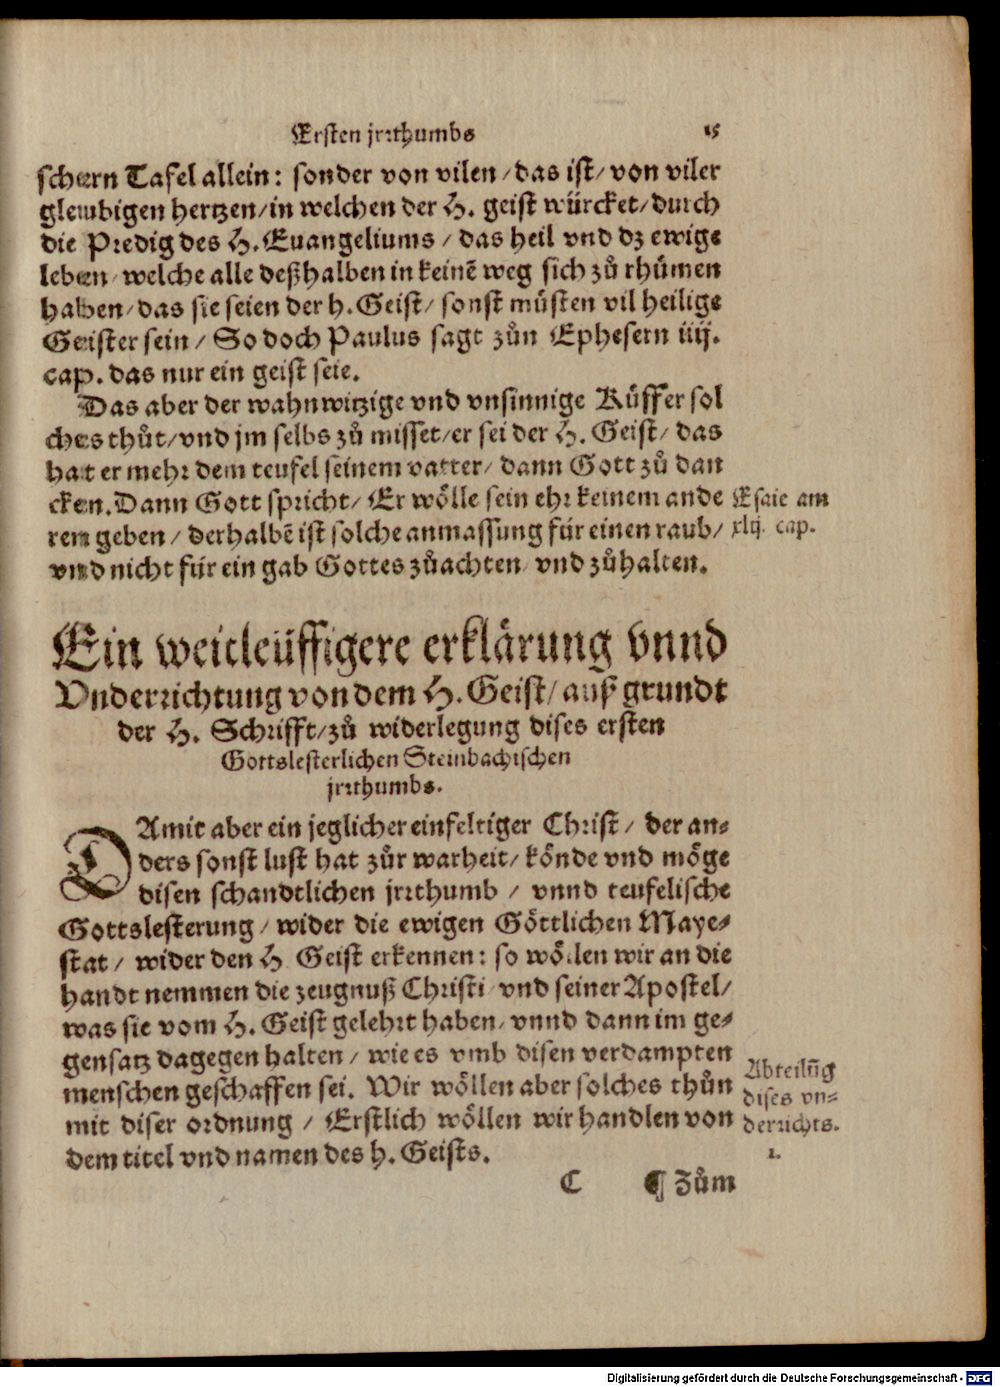 Ersten jrꝛthumbs 15
schern Tafel allein: sonder von vilen / das ist / von viler
glewbigen hertzen / in welchen der H. geist würcket / durch
die Predig des H. Euangeliums / das heil vnd dz ewige
leben / welche alle deßhalben in keinē weg sich zů rhümen
haben / das sie seien der h. Geist / sonst müsten vil heilige
Geister sein / So doch Paulus sagt zůn Ephesern iiij.
cap. das nur ein geist seie.
Das aber der wahnwitzige vnd vnsinnige Küffer sol
ches thůt / vnd jm selbs zů misset / er sei der H. Geist / das
hat er mehr dem teufel seinem vatter / dann Gott zů dan
cken. Dann Gott spricht / Er wölle sein ehr keinem ande
ren geben / derhalbē ist solche anmassung für einen raub /
vnd nicht für ein gab Gottes zůachten / vnd zůhalten.
Esaie am
xlij. cap.
Ein weitleüffigere erklärung vnnd
Vnderrichtung von dem H. Geist / auß grundt
der H. Schrifft / zů widerlegung dises ersten
Gottslesterlichen Steinbachischen
jrrthumbs.
DAmit aber ein jeglicher einfeltiger Christ / der an⸗
ders sonst lust hat zůr warheit / könde vnd möge
disen schandtlichen jrrthumb / vnnd teufelische
Gottslesterung / wider die ewigen Göttlichen Maye⸗
stat / wider den H Geist erkennen: so wöllen wir an die
handt nemmen die zeugnuß Christi / vnd seiner Apostel /
was sie vom H. Geist gelehrt haben / vnnd dann im ge⸗
gensatz dagegen halten / wie es vmb disen verdampten
menschen geschaffen sei. Wir wöllen aber solches thůn
mit diser ordnung / Erstlich wöllen wir handlen von
dem titel vnd namen des h. Geists.
Abteilūg
dises vn⸗
derrichts.
1.
C ¶ Zům
Digitalisierung gefördert durch die Deutsche Forschungsgemeinschaft - DFG